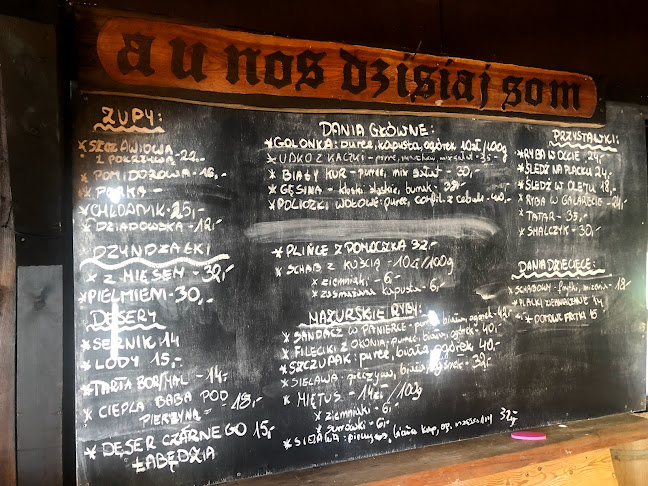 au nos dzisiaj som
ZUPY:
* SZCZAWIOWA
Z POKRZYWĄ - 22,-
* POMIDOROWA - 18,-
* CHŁODNIK - 25,-
* DZIADOWSKA - 12,-
DZYNDZAŁKI
* Z MIĘSEM - 32,-
* PIELMIEM - 30,-
DESERY
* SERNIK 14
* LODY 15,-
* TARTA BOR/MAL - 14,-
* CIEPŁA BABA POD - 18,-
PIERZYNĄ
* DESER CZARNEGO 15,-
ŁABĘDZIA
DANIA GŁÓWNE:
* GOLONKA: puree, kapusta, ogórek 10zł/100g
* UDKO Z KACZKI - puree, 35,-
* BIAŁY KUR - puree, mix sałat - 30,-
* GĘSINA - kluski śląskie, burak -
* POLICZKI WOŁOWE: puree, z cebuli - 40,-
* PLIŃCE Z POMOCZKĄ 32,-
* SCHAB Z KOŚCIĄ - 10zł/100g
* ziemniaki - 6,-
* zasmażana kapusta - 6,-
MAZURSKIE RYBY:
* SANDACZ W PANIERCE - puree, biała, ogórek - 42,-
* FILECIKI Z OKONIA - puree, biała, ogórek - 40,-
* SZCZUPAK: puree, biała, ogórek 40,-
* SIELAWA - pieczywo, biała, ogórek - 32,-
* MIĘTUS - 14zł/100g
* ziemniaki - 6,-
* surówki - 6,-
* pieczywo, biała kap, og. 32,-
PRZYSTAWKI:
* RYBA W OCCIE - 24,-
* ŚLEDŹ NA PLACKU 24,-
* ŚLEDŹ W OLEJU 18,-
* RYBA W GALARECIE - 24,-
* TATAR - 35,-
* SMALCZYK - 30,-
DANIA DZIECIĘCE:
* SCHABOWY - frytki, mizeria - 18,-
* PLACKI ZIEMNIACZANE 14
* DOMOWE FRYTKI 15